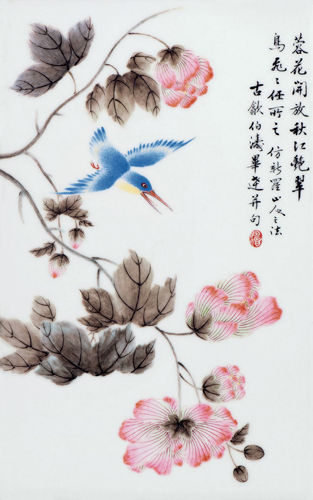 蓉花開放秋江艷翠
鳥飛之任所之仿新羅山人之法
古歙伯濤畢達并句